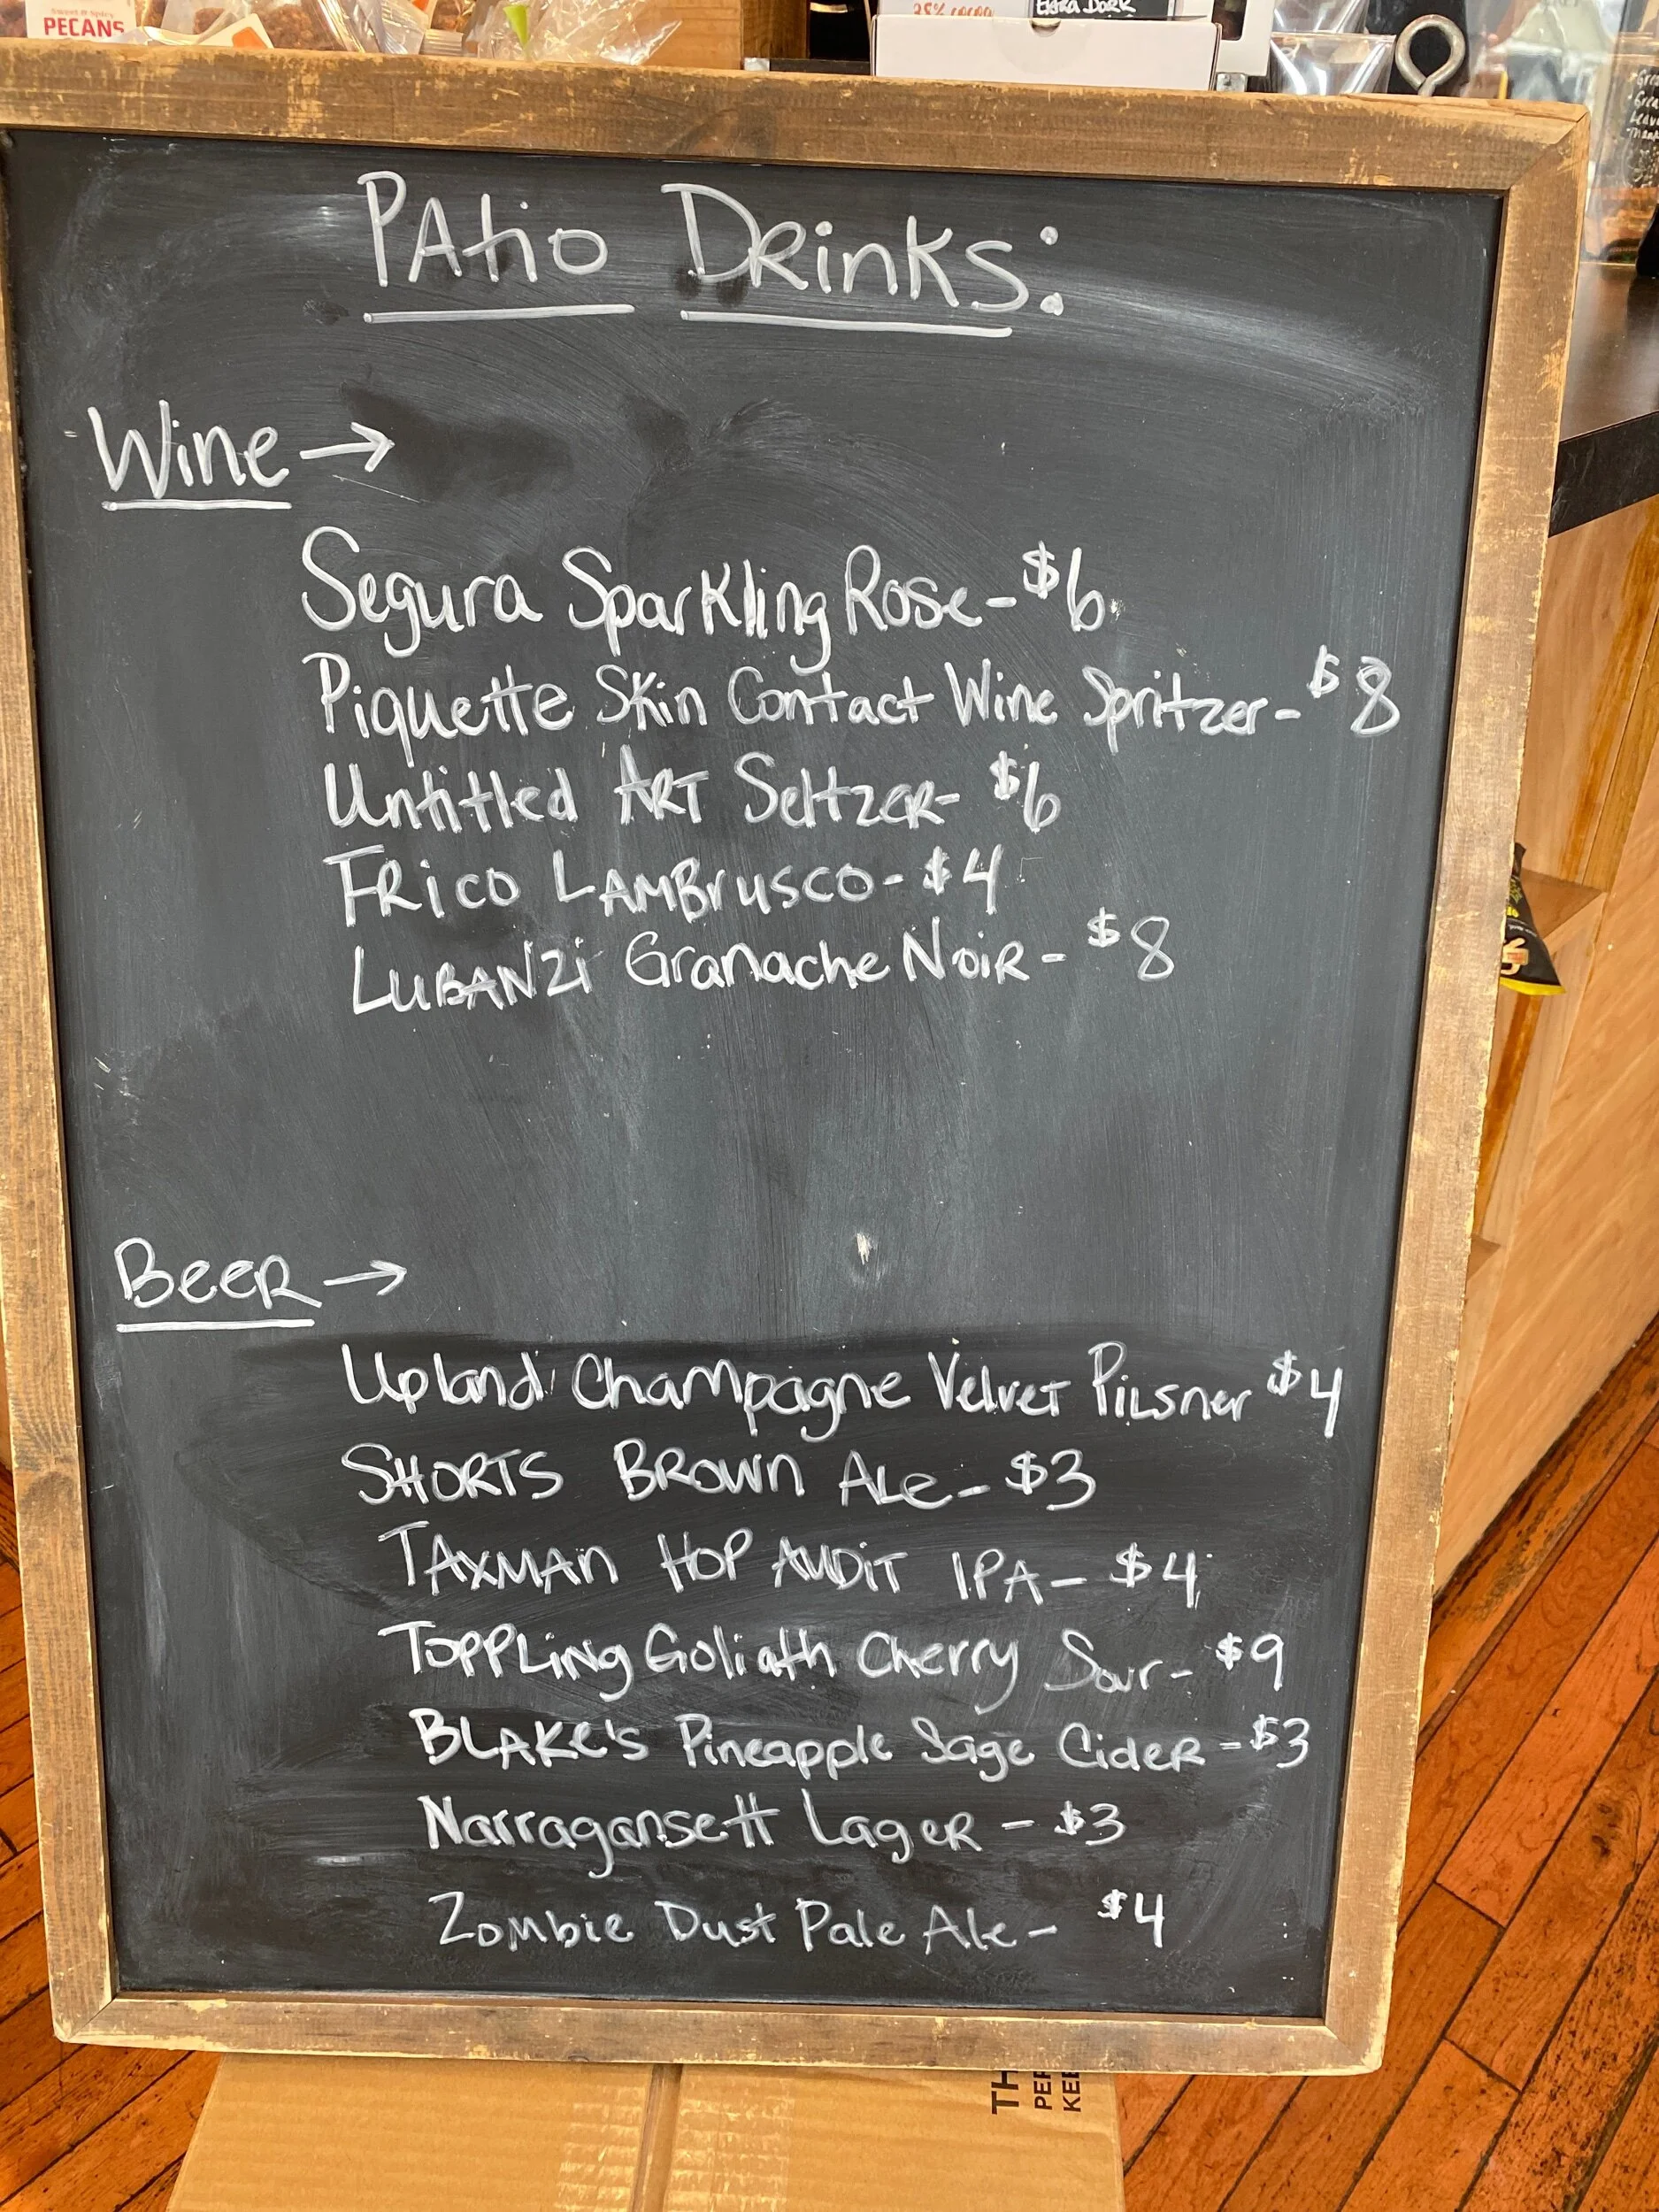 Sweet & Spicy
PECANS
38% cocoa
EXTRA DARK
PAtio DRinKS:
Wine →
Segura Sparkling Rose - $6
Piquette Skin Contact Wine Spritzer - $8
Untitled ART SeltzeR - $6
FRico LAMBrusco - $4
LUBANZi Granache NoiR - $8
BeeR →
Upland Champagne Velvet PiLsner $4
SHORTS BROWN ALe - $3
TAXMAN HOP AUDiT IPA - $4
ToPPLing Goliath Cherry Sour - $9
BLAKe's Pineapple Sage CideR - $3
Narragansett LageR - $3
Zombie Dust Pale Ale - $4
TH
PER
KEE